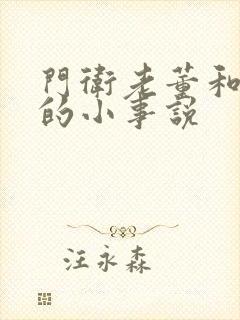 門衛老董和
的小事說
汪永森